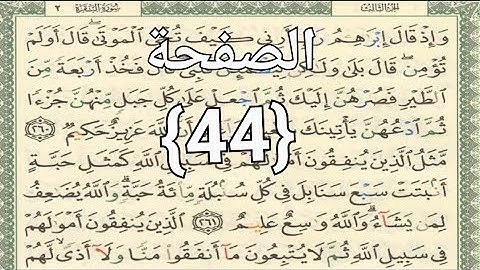 الجزء الثالث
سورة البقرة ٢
وَإِذْ قَالَ إِبْرَٰهِـۧمُ أَرِنِى كَيْفَ تُحْىِ ٱلْمَوْتَىٰ ۖ قَالَ أَوَلَمْ
الصفحة
تُؤْمِن ۖ قَالَ بَلَىٰ وَلَـٰكِن قَالَ فَخُذْ أَرْبَعَةً مِّنَ
ٱلطَّيْرِ فَصُرْهُنَّ إِلَيْكَ ثُمَّ ٱجْعَلْ عَلَىٰ كُلِّ جَبَلٍ مِّنْهُنَّ جُزْءًا
{44}
ثُمَّ ٱدْعُهُنَّ يَأْتِينَكَ ٱللَّهَ عَزِيزٌ حَكِيمٌ ٢٦٠
مَّثَلُ ٱلَّذِينَ يُنفِقُونَ أَمْوَٰلَهُمْ فِى سَبِيلِ ٱللَّهِ كَمَثَلِ حَبَّةٍ
أَنۢبَتَتْ سَبْعَ سَنَابِلَ فِى كُلِّ سُنۢبُلَةٍ مِّا۟ئَةُ حَبَّةٍ ۗ وَٱللَّهُ يُضَـٰعِفُ
لِمَن يَشَآءُ ۗ وَٱللَّهُ وَٰسِعٌ عَلِيمٌ ٢٦١ ٱلَّذِينَ يُنفِقُونَ أَمْوَٰلَهُمْ
فِى سَبِيلِ ٱللَّهِ ثُمَّ لَا يُتْبِعُونَ مَآ أَنفَقُوا۟ مَنًّا وَلَآ أَذًى ۙ لَّهُمْ